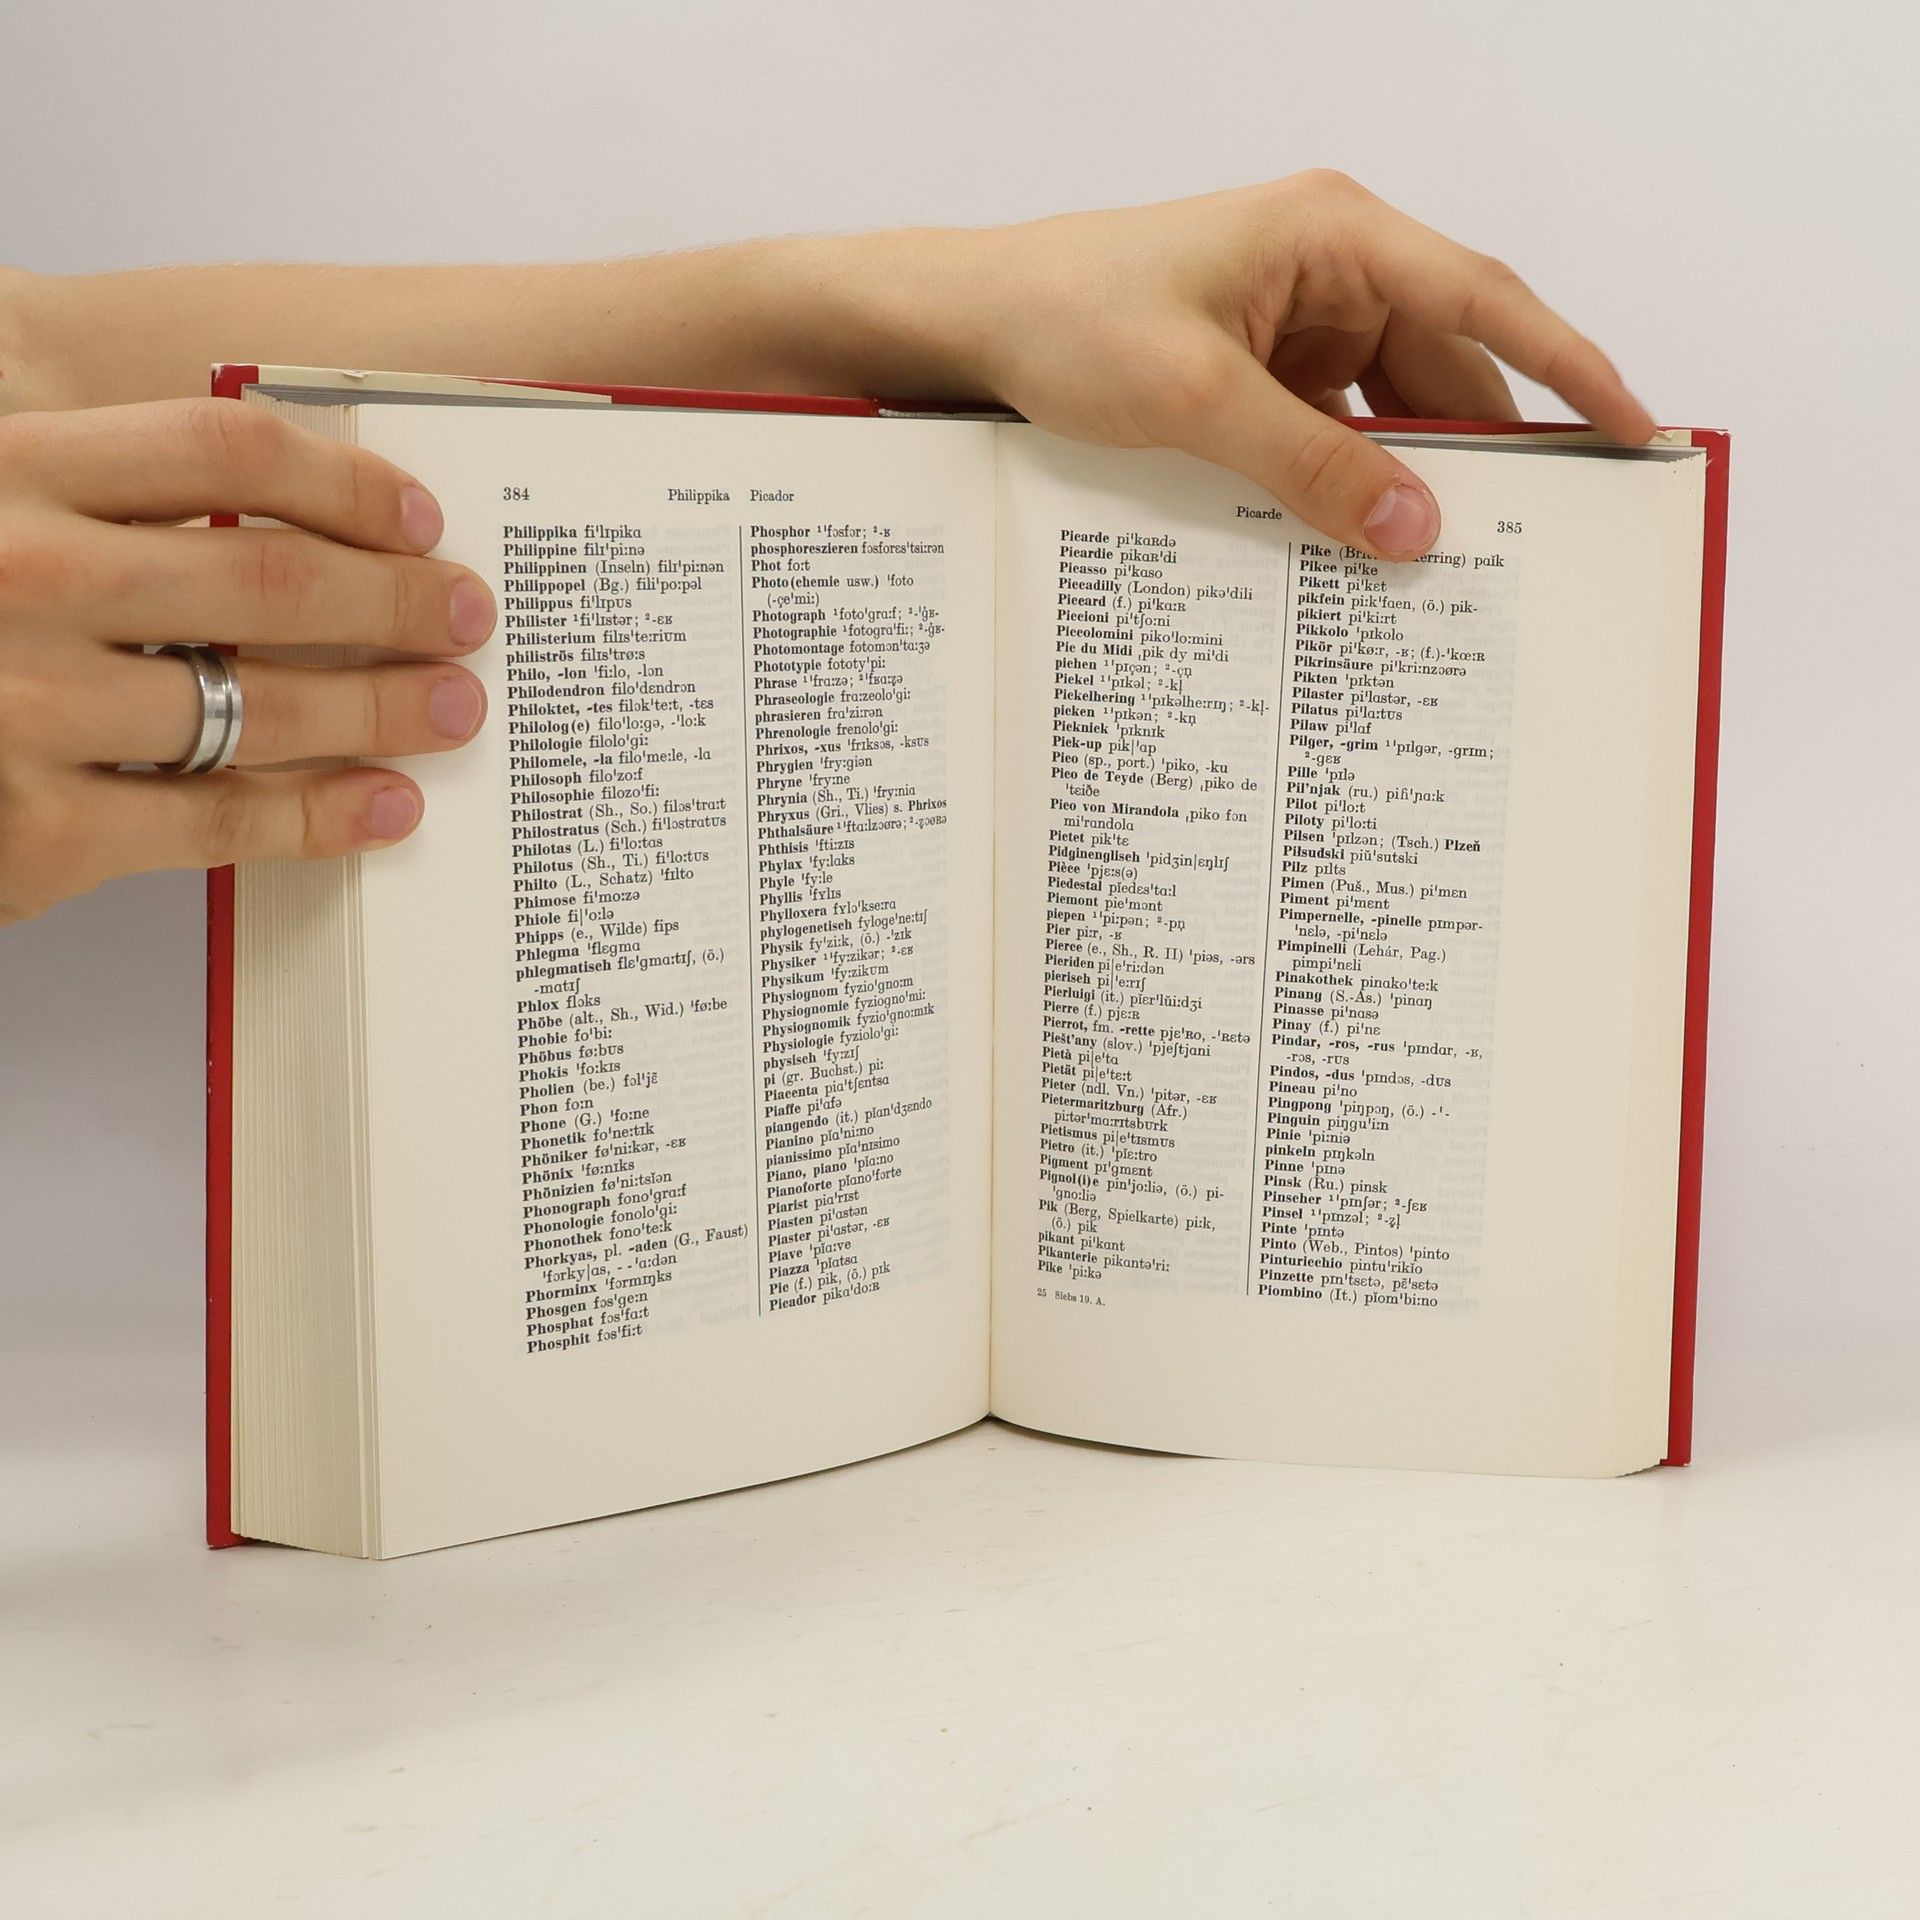 384
Philippika Picador
Philippika fi'lɪpika
Philippine filɪ'pi:nə
Philippinen (Inseln) filɪ'pi:nən
Philippopel (Bg.) fili'po:pəl
Philippus fi'lɪpʊs
Philister ¹fi'lɪstər; ²-ɛʀ
Philisterium filɪs'te:riʊm
philiströs filɪs'trø:s
Philo, -lon 'fi:lo, -lɔn
Philodendron filo'dɛndrɔn
Philoktet, -tes filɔk'te:t, -tɛs
Philolog(e) filo'lo:gə, -'lo:k
Philologie filolo'gi:
Philomele, -la filo'me:le, -la
Philosoph filo'zo:f
Philosophie filozo'fi:
Philostrat (Sh., So.) filɔs'tra:t
Philostratus (Sch.) fi'lɔstratʊs
Philotas (L.) fi'lo:tas
Philotus (Sh., Ti.) fi'lo:tʊs
Philto (L., Schatz) 'fɪlto
Phimose fi'mo:zə
Phiole fi|'o:lə
Phipps (e., Wilde) fips
Phlegma 'flɛgma
phlegmatisch flɛ'gma:tɪʃ, (ö.)
-matɪʃ
Phlox flɔks
Phöbe (alt., Sh., Wid.) 'fø:be
Phobie fo'bi:
Phöbus fø:bʊs
Phokis 'fo:kɪs
Pholien (be.) fɔl'jɛ̃
Phon fo:n
Phone (G.) 'fo:ne
Phonetik fo'ne:tɪk
Phöniker fø'ni:kər, -ɛʀ
Phönix 'fø:nɪks
Phönizien fø'ni:tsĭən
Phonograph fono'gra:f
Phonologie fonolo'gi:
Phonothek fono'te:k
Phorkyas, pl. -aden (G., Faust)
'fɔrky|as, - -'a:dən
Phorminx 'fɔrmɪŋks
Phosgen fɔs'ge:n
Phosphat fɔs'fa:t
Phosphit fɔs'fi:t
Phosphor ¹'fɔsfɔr; ²-ʀ
phosphoreszieren fɔsforɛs'tsi:rən
Phot fo:t
Photo(chemie usw.) 'foto
(-çe'mi:)
Photograph ¹foto'gra:f; ²-'ġʀ-
Photographie ¹fotogra'fi:; ²-ġʀ-
Photomontage fotomɔn'ta:ʒə
Phototypie fototy'pi:
Phrase ¹'fra:zə; ²'fʀa:zə
Phraseologie fra:zeolo'gi:
phrasieren fra'zi:rən
Phrenologie frenolo'gi:
Phrixos, -xus 'frɪksɔs, -ksʊs
Phrygien 'fry:giən
Phryne 'fry:ne
Phrynia (Sh., Ti.) 'fry:nia
Phryxus (Gri., Vlies) s. Phrixos
Phthalsäure ¹'fta:lzɔørə; ²-zɔøʀə
Phthisis 'fti:zɪs
Phylax 'fy:laks
Phyle 'fy:le
Phyllis 'fʏlɪs
Phylloxera fʏlɔ'kse:ra
phylogenetisch fyloge'ne:tɪʃ
Physik fy'zi:k, (ö.) -'zɪk
Physiker ¹'fy:zikər; ²-ɛʀ
Physikum 'fy:zikʊm
Physiognom fyzio'gno:m
Physiognomie fyziogno'mi:
Physiognomik fyzio'gno:mɪk
Physiologie fyziolo'gi:
physisch 'fy:zɪʃ
pi (gr. Buchst.) pi:
Piacenta pia'tʃɛntsa
Piaffe pi'afə
piangendo (it.) pĭan'dʒɛndo
Pianino pĭa'ni:no
pianissimo pĭa'nɪsimo
Piano, piano 'pĭa:no
Pianoforte pĭano'forte
Piarist pia'rɪst
Piasten pi'astən
Piaster pi'astər, -ɛʀ
Piave 'pĭa:ve
Piazza 'pĭatsa
Pic (f.) pik, (ö.) pɪk
Picador pika'do:ʀ
Picarde
385
Picarde pi'kaʀdə
Picardie pikaʀ'di
Picasso pi'kaso
Piccadilly (London) pikə'dili
Piccard (f.) pi'ka:ʀ
Piccioni pi'tʃo:ni
Piccolomini piko'lo:mini
Pic du Midi ˌpik dy mi'di
pichen ¹'pɪçən; ²-çn̩
Pickel ¹'pɪkəl; ²-kl̩
Pickelhering ¹'pɪkəlhe:rɪŋ; ²-kl̩-
picken ¹'pɪkən; ²-kn̩
Picknick 'pɪknɪk
Pick-up pik|'ap
Pico (sp., port.) 'piko, -ku
Pico de Teyde (Berg) ˌpiko de
'tɛiðe
Pico von Mirandola ˌpiko fɔn
mi'randola
Pictet pik'tɛ
Pidginenglisch 'pidʒin|ɛŋlɪʃ
Pièce 'pjɛ:s(ə)
Piedestal pĭedɛs'ta:l
Piemont pie'mɔnt
piepen ¹'pi:pən; ²-pn̩
Pier pi:r, -ʀ
Pierce (e., Sh., R. II) 'piəs, -ərs
Pieriden pi|e'ri:dən
pierisch pi|'e:rɪʃ
Pierluigi (it.) pĭɛr'lŭi:dʒi
Pierre (f.) pjɛ:ʀ
Pierrot, fm. -rette pjɛ'ʀo, -'ʀɛtə
Piešt'any (slov.) 'pjeʃtjani
Pietà pi|e'ta
Pietät pi|e'tɛ:t
Pieter (ndl. Vn.) 'pitər, -ɛʀ
Pietermaritzburg (Afr.)
pi:tər'ma:rɪtsbʊrk
Pietismus pi|e'tɪsmʊs
Pietro (it.) 'pĭɛ:tro
Pigment pɪ'gmɛnt
Pignol(i)e pin'jo:liə, (ö.) pi-
'gno:liə
Pik (Berg, Spielkarte) pi:k,
(ö.) pik
pikant pi'kant
Pikanterie pikantə'ri:
Pike 'pi:kə
25 Siebs 19. A.
Pike (Brit erring) paĭk
Pikee pi'ke
Pikett pi'kɛt
pikfein pi:k'faen, (ö.) pik-
pikiert pi'ki:rt
Pikkolo 'pɪkolo
Pikör pi'kø:r, -ʀ; (f.)-'kœ:ʀ
Pikrinsäure pi'kri:nzɔørə
Pikten 'pɪktən
Pilaster pi'lastər, -ɛʀ
Pilatus pi'la:tʊs
Pilaw pi'laf
Pilger, -grim ¹'pɪlgər, -grɪm;
²-gɛʀ
Pille 'pɪlə
Pil'njak (ru.) pifi'ɲa:k
Pilot pi'lo:t
Piloty pi'lo:ti
Pilsen 'pɪlzən; (Tsch.) Plzeň
Piłsudski piŭ'sutski
Pilz pɪlts
Pimen (Puš., Mus.) pi'mɛn
Piment pi'mɛnt
Pimpernelle, -pinelle pɪmpər-
'nɛlə, -pi'nɛlə
Pimpinelli (Lehár, Pag.)
pimpi'nɛli
Pinakothek pinako'te:k
Pinang (S.-As.) 'pinaŋ
Pinasse pi'nasə
Pinay (f.) pi'nɛ
Pindar, -ros, -rus 'pɪndar, -ʀ,
-rɔs, -rʊs
Pindos, -dus 'pɪndɔs, -dʊs
Pineau pi'no
Pingpong 'piŋpɔŋ, (ö.) -'-
Pinguin pɪŋgu'i:n
Pinie 'pi:niə
pinkeln pɪŋkəln
Pinne 'pɪnə
Pinsk (Ru.) pinsk
Pinscher ¹'pɪnʃər; ²-ʃɛʀ
Pinsel ¹'pɪnzəl; ²-zl̩
Pinte 'pɪntə
Pinto (Web., Pintos) 'pinto
Pinturicchio pintu'rikĭo
Pinzette pɪn'tsɛtə, pɛ̃'sɛtə
Piombino (It.) pĭom'bi:no